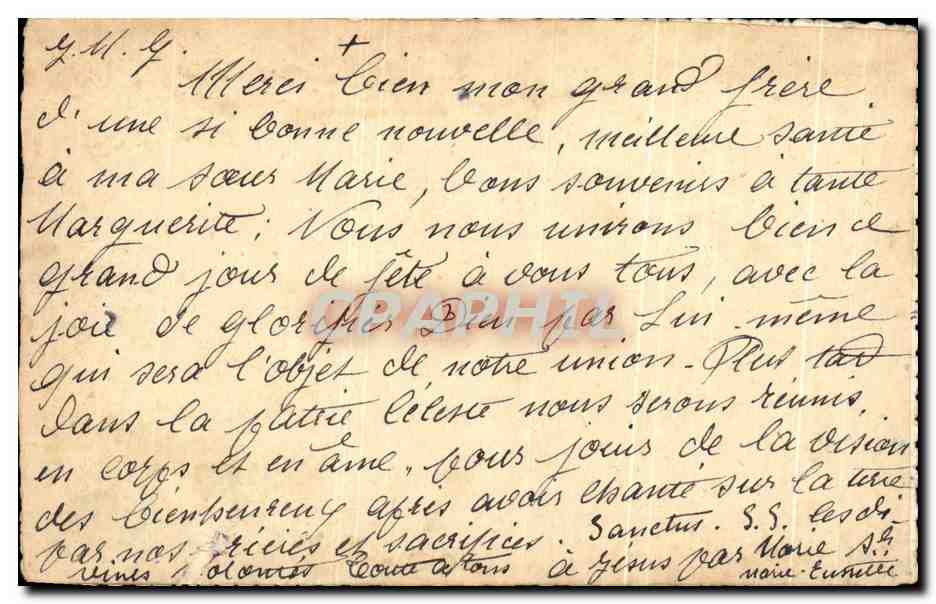 J. M. J. +
Merci bien mon grand frère
d'une si bonne nouvelle, meilleure santé
à ma sœur Marie, bons souvenirs à tante
Marguerite; Nous nous unirons bien ce
grand jour de fête à vous tous, avec la
joie de glorifier Dieu par Lui-même
qui sera l'objet de notre union. Plus tard
dans la patrie Céleste nous serons réunis,
en corps et en âme, pour jouir de la vision
des bienheureux après avoir chanté sur la terre
par nos prières et sacrifices. Sanctus. S. S. les di-
vines Toute à tous à Jésus par Marie Sr
Marie-